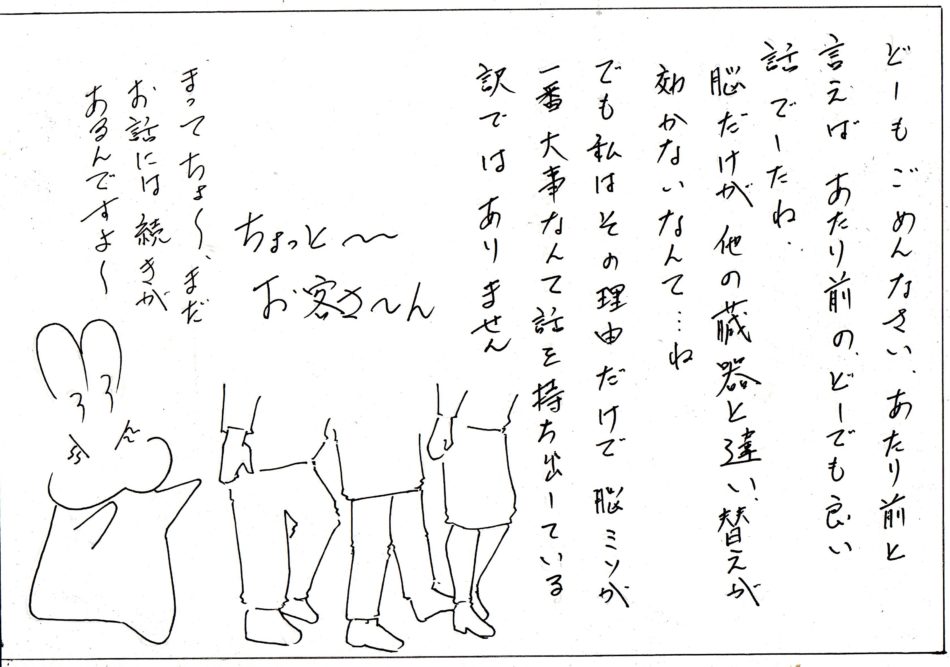 どーもごめんなさい、あたり前と
言えばあたり前の、どーでも良い
話でーたね、
脳だけが他の臓器と違い、替えが
効かないなんて…ね
でも私はその理由だけで脳ミソが
一番大事なんて話を持ち出している
訳ではありません
ちょっと〜
お客さ〜ん
まってちょ〜、まだ
お話には続きが
あるんですよ〜